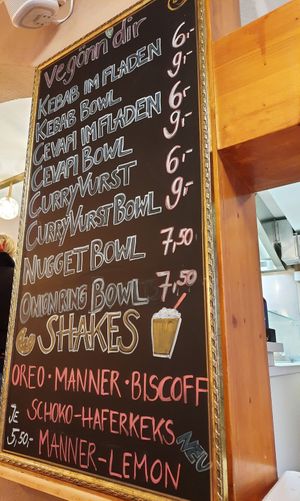 Vegönn dir
KEBAB IM FLADEN 6,-
KEBAB BOWL 9,-
CEVAPI IM FLADEN 6,-
CEVAPI BOWL 9,-
CURRYVURST 6,-
CURRYVURST BOWL 9,-
NUGGET BOWL 7,50
ONIONRING BOWL 7,50
SHAKES
OREO · MANNER · BISCOFF
JE SCHOKO-HAFERKEKS NEU
5,50,- MANNER-LEMON